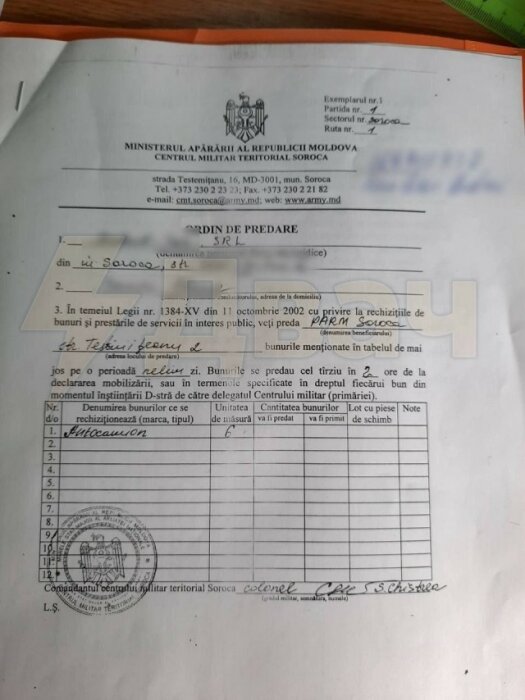 Exemplarul nr.1
Partida nr. 1
Sectorul nr. Soroca
Ruta nr. 1
MINISTERUL APĂRĂRII AL REPUBLICII MOLDOVA
CENTRUL MILITAR TERITORIAL SOROCA
strada Testemițanu, 16, MD-3001, mun. Soroca
Tel. +373 230 2 23 23; Fax. +373 230 2 21 82
e-mail: cmt.soroca@army.md; web: www.army.md
ORDIN DE PREDARE
1. SRL
din m. Soroca, str
2.
3. În temeiul Legii nr. 1384-XV din 11 octombrie 2002 cu privire la rechizițiile de
bunuri și prestările de servicii în interes public, veți preda PARM Soroca
(denumirea beneficiarului)
str Testimițeanu 2 bunurile menționate în tabelul de mai
(adresa locului de predare)
jos pe o perioadă zi. Bunurile se predau cel tîrziu în 2 ore de la
declararea mobilizării, sau în termenele specificate în dreptul fiecărui bun din
momentul înștiințării D-stră de către delegatul Centrului militar (primăriei).
Nr. d/o Denumirea bunurilor ce se rechiziționează (marca, tipul) Unitatea de măsură Cantitatea bunurilor va fi predat va fi primit Lot cu piese de schimb Note
1. Autocamion 6
2.
3.
4.
5.
6.
7.
8.
9.
10.
11.
12.
Comandantul centrului militar teritorial Soroca colonel S. Chistrea
(gradul militar, semnătura, numele)
L.Ș.